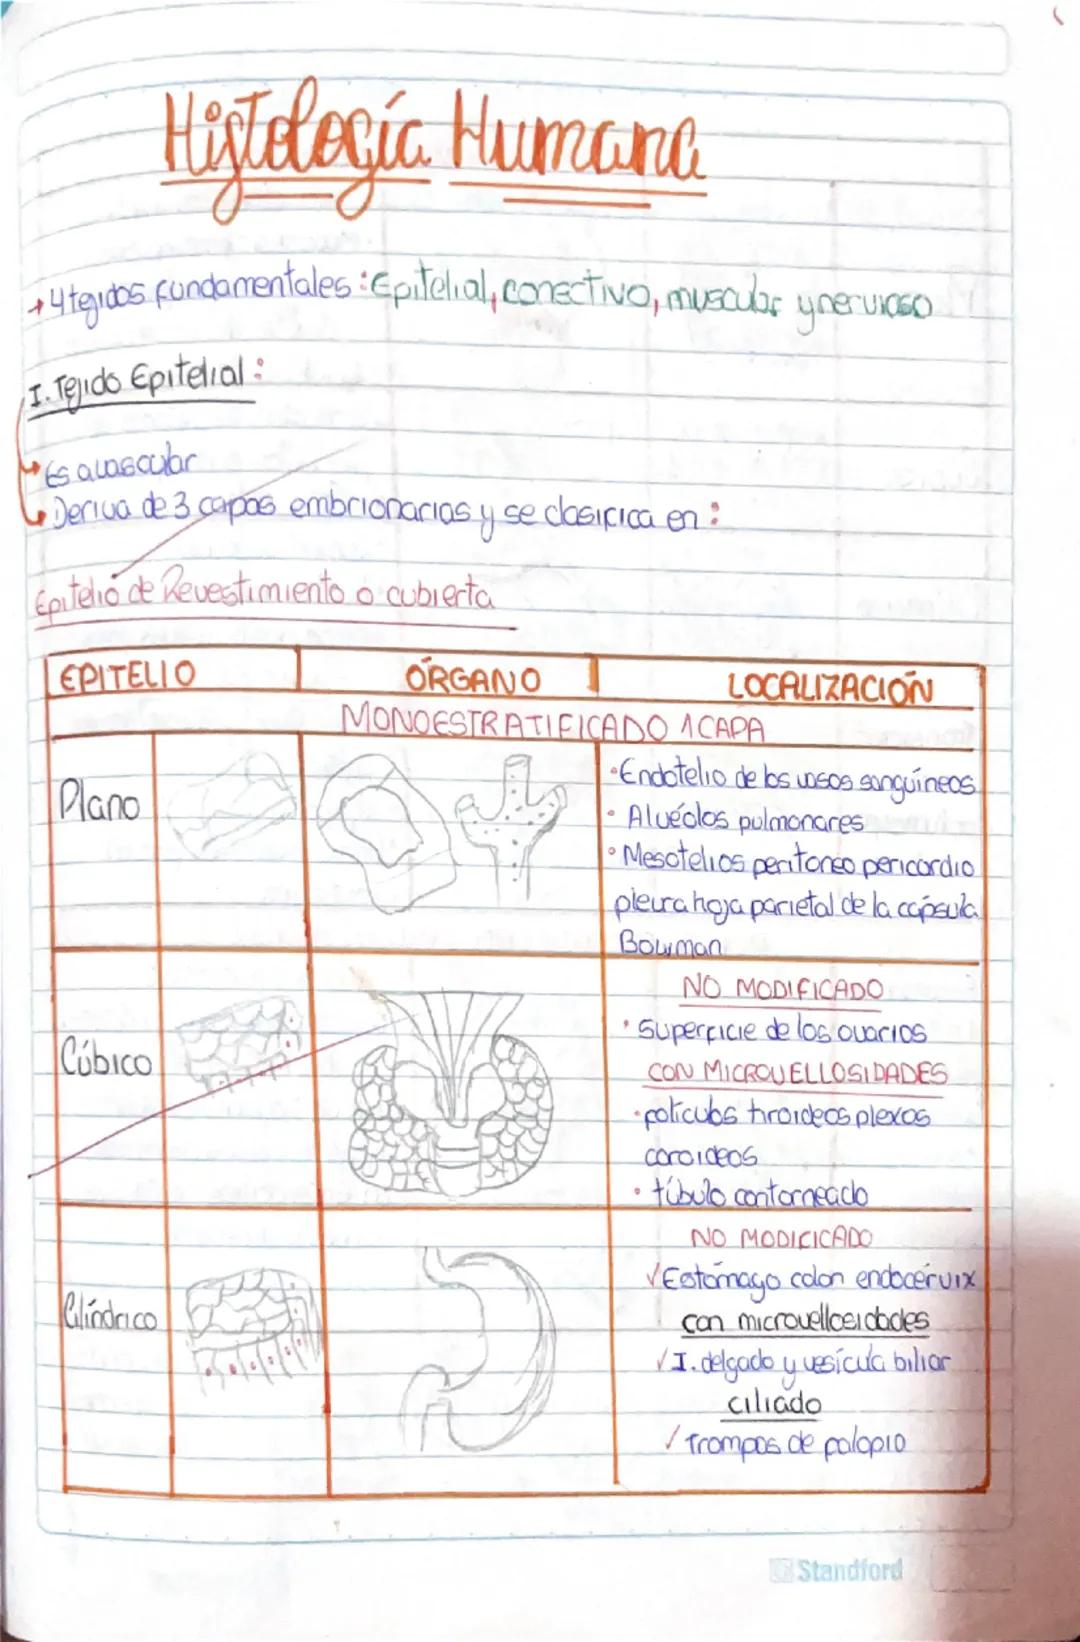 Histología Humana
→ 4 tejidos fundamentales: Epitelial, conectivo, muscular y nervioso
I. Tejido Epitelial:
Es avascular
Deriva de 3 capas embrionarias y se clasifica en:
Epitelio de Revestimiento o cubierta
EPITELIO ÓRGANO LOCALIZACIÓN
MONOESTRATIFICADO 1 CAPA
Plano
• Endotelio de los vasos sanguíneos
• Alvéolos pulmonares
• Mesotelios peritoneo pericardio
pleura hoja parietal de la capsula
Bowman
Cúbico
NO MODIFICADO
• Superficie de los ovarios
CON MICROVELLOSIDADES
• foliculos tiroideos plexos
coroideos
• túbulo contorneado
Cilíndrico
NO MODIFICADO
√ Estómago colon endocérvix
con microvellosidades
√ I. delgado y vesícula biliar
ciliado
√ Trompas de falopio
Standford